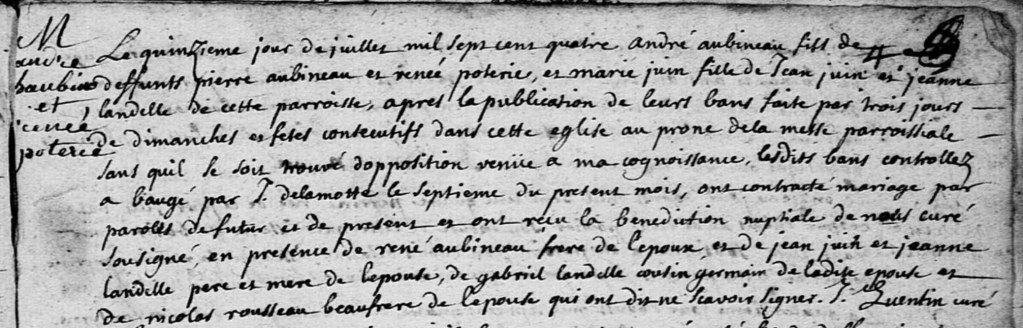 M
andré
haubineau
et
renée
poterie
Le quinzieme jour de juillet mil sept cent quatre andré aubineau fils de
deffunts pierre aubineau et renée poterie, et marie juin fille de Jean juin et jeanne
landelle de cette parroisse, apres la publication de leurs bans faite par trois jours
de dimanches et fetes consecutifs dans cette eglise au prone de la messe parroissiale
sans quil se soit trouvé dopposition venüe a ma cognoissance, lesdits bans controllez
a baugé par J. delamotte le septieme du present mois, ont contracté mariage par
paroles de futur et de present et ont recu la benediction nuptiale de nous curé
sousigné, en presence de rené aubineau frere de lepoux, et de jean juin et jeanne
landelle pere et mere de lepouse, de gabriel landelle cousin germain de ladite epouse et
de nicolas rousseau beaufrere de lepouse qui ont dit ne scavoir signer. J. Quentin curé